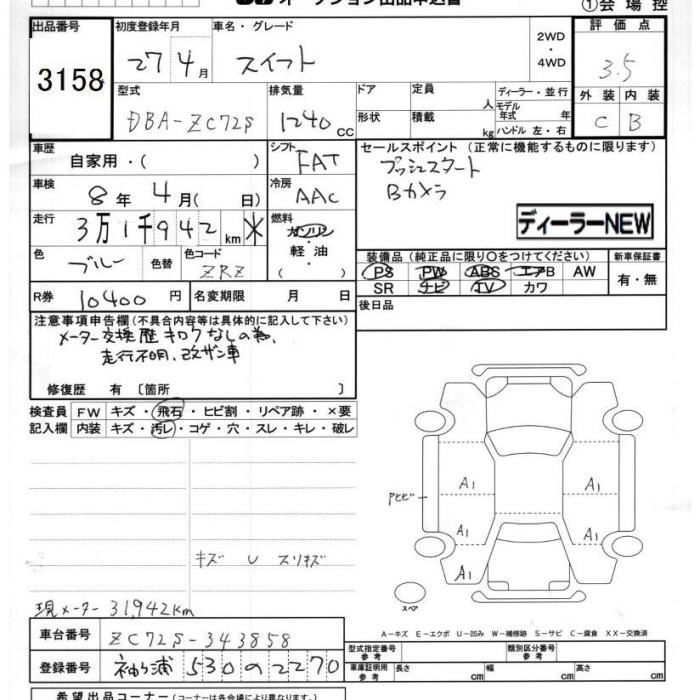 オークション出品申込書
①会場控
出品番号 初度登録年月 車名・グレード 2WD・4WD 評価点
3158 27 4月 スイフト 3.5
型式 排気量 ドア 定員 人 ディーラー・並行 外装 内装
DBA-ZC72S 1240 CC 形状 積載 kg モデル年式 年 C B
ハンドル 左・右
車歴 自家用・( ) シフト FAT セールスポイント (正常に機能するものに限ります)
車検 8年 4月( 日) 冷房 AAC プッシュスタート
Bカメラ
走行 3万1千942km ※ 燃料 ガソリン・軽油・( ) ディーラーNEW
色 ブルー 色替 色コード ZRZ 装備品(純正品に限り○をつけてください) 新車保証書
PS PW ABS エアB AW 有・無
R券 10400円 名変期限 月 日 SR ナビ TV カワ
後日品
注意事項申告欄(不具合内容等は具体的に記入して下さい)
メーター交換歴キロクなしの為、
走行不明、改ザン車
修復歴 有 〔箇所 〕
検査員 FW キズ・飛石・ヒビ割・リペア跡・×要
記入欄 内装 キズ・汚レ・コゲ・穴・スレ・キレ・破レ
A1 A1
Pヒビ
A1 A1
キズ U スリキズ
A1
スペア
現メーター 31,942km
A-キズ E-エクボ U-凹み W-補修跡 S-サビ C-腐食 XX-交換済
車台番号 ZC72S-343858
型式指定番号 類別区分番号
登録番号 袖ヶ浦 530 の 2270
車庫証明用参考 長さ cm 幅 cm 高さ cm
希望出品コーナー(コーナーは各会場により異なります。)
参考 参考